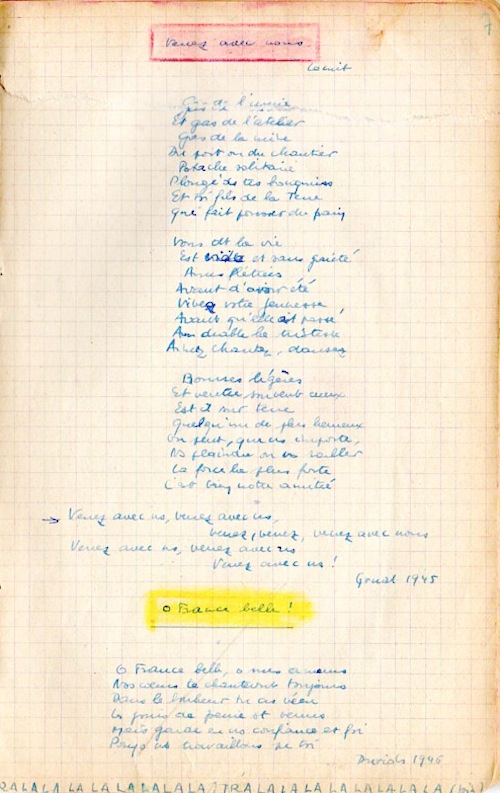 7
Venez avec nous
Gas de l'usine
Et gas de l'atelier
Gas de la mine
Du port ou du chantier
Potache solitaire
Plongé ds tes bouquins
Et toi fils de la Terre
Qui fait pousser du pain
Vous dt la vie
Est vide et sans gaieté
Ames flétries
Avant d'avoir été
Vivez votre jeunesse
Avant qu'elle ait passé
Au diable la tristesse
Aimez chantez, dansez
Bourses légères
Et ventre souvent creux
Est il sur terre
Quelqu'un de plus heureux
On peut, que ns importe,
Ns plaindre ou ns railler
La force la plus forte
C'est bien notre amitié
Venez avec ns, venez avec ns,
venez, venez, venez avec nous
Venez avec ns, venez avec ns
Venez avec ns !
1945
O France belle !
O France belle, o mes amours
Nos coeurs te chanteront toujours
Dans le malheur tu as vécu
Les jours de peine st venus
Mais garde en ns confiance et foi
Pays ns travaillons pr toi
1946
RALALA LA LA LALALALA TRALALALALALALALALA (bis)